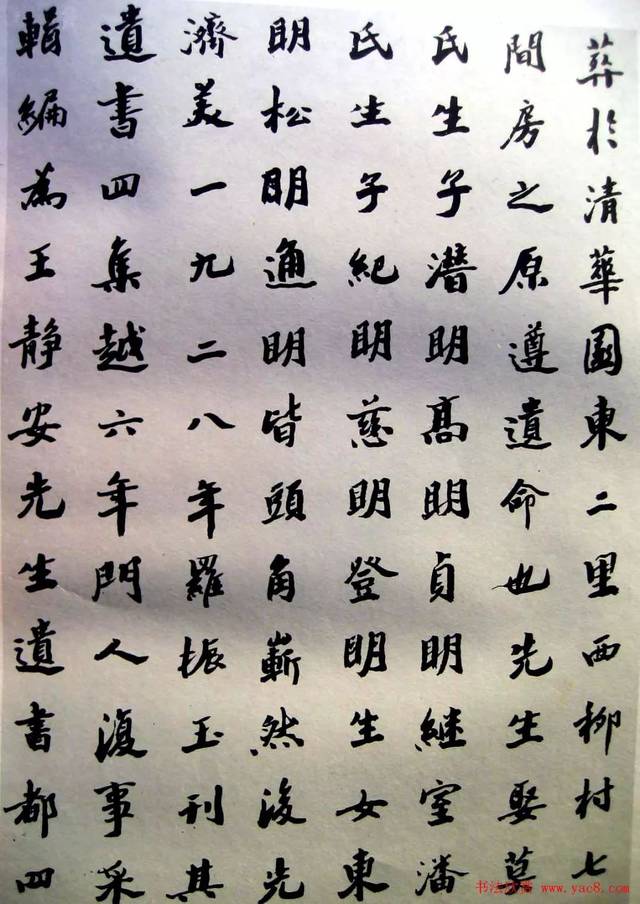 葬於清華園東二里西柳村七
間房之原遵遺命也先生娶莫
氏生子潛明高明貞明继室潘
氏生子紀明慈明登明生女東
明松明通明皆頭角嶄然後先
濟美一九二八年羅振玉刊其
遺書四集越六年門人復事采
輯編為王靜安先生遺書都四
书法欣赏 www.yac8.com